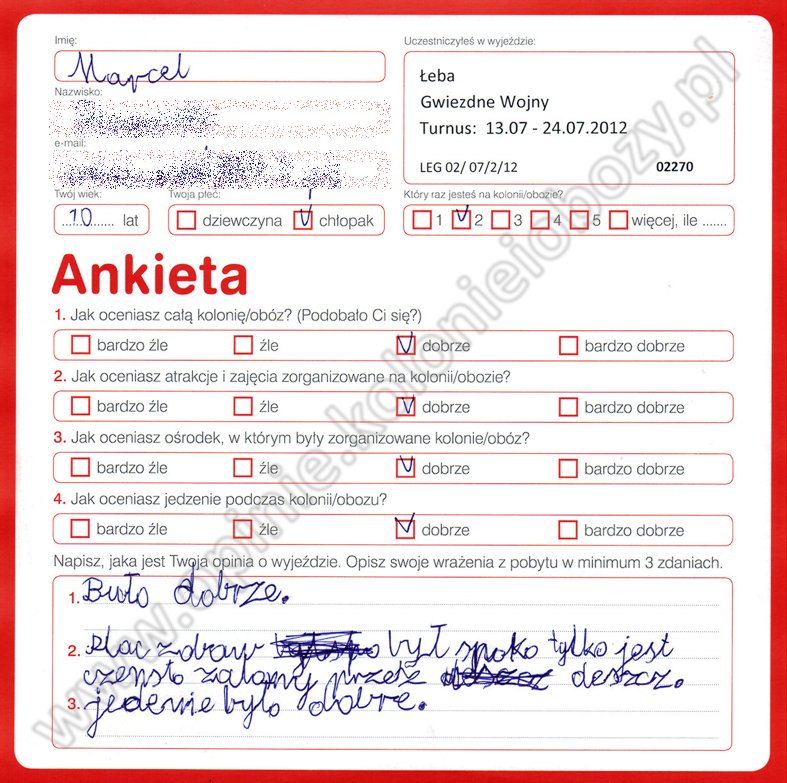 Imię:
Marcel
Uczestniczyłeś w wyjeździe:
Łeba
Gwiezdne Wojny
Turnus: 13.07 - 24.07.2012
LEG 02/ 07/2/12 02270
Nazwisko:
e-mail:
Twój wiek:
10 lat
Twoja płeć:
dziewczyna chłopak
Który raz jesteś na kolonii/obozie?
1 2 3 4 5 więcej, ile .......
Ankieta
1. Jak oceniasz całą kolonię/obóz? (Podobało Ci się?)
bardzo źle źle dobrze bardzo dobrze
2. Jak oceniasz atrakcje i zajęcia zorganizowane na kolonii/obozie?
bardzo źle źle dobrze bardzo dobrze
3. Jak oceniasz ośrodek, w którym były zorganizowane kolonie/obóz?
bardzo źle źle dobrze bardzo dobrze
4. Jak oceniasz jedzenie podczas kolonii/obozu?
bardzo źle źle dobrze bardzo dobrze
Napisz, jaka jest Twoja opinia o wyjeździe. Opisz swoje wrażenia z pobytu w minimum 3 zdaniach.
1. Buło dobrze.
2. Plac zdraw był spoko tylko jest
czensto zalany przesz deszcz.
3. jedenie było dobre.
www.opinie.kolonieiobozy.pl